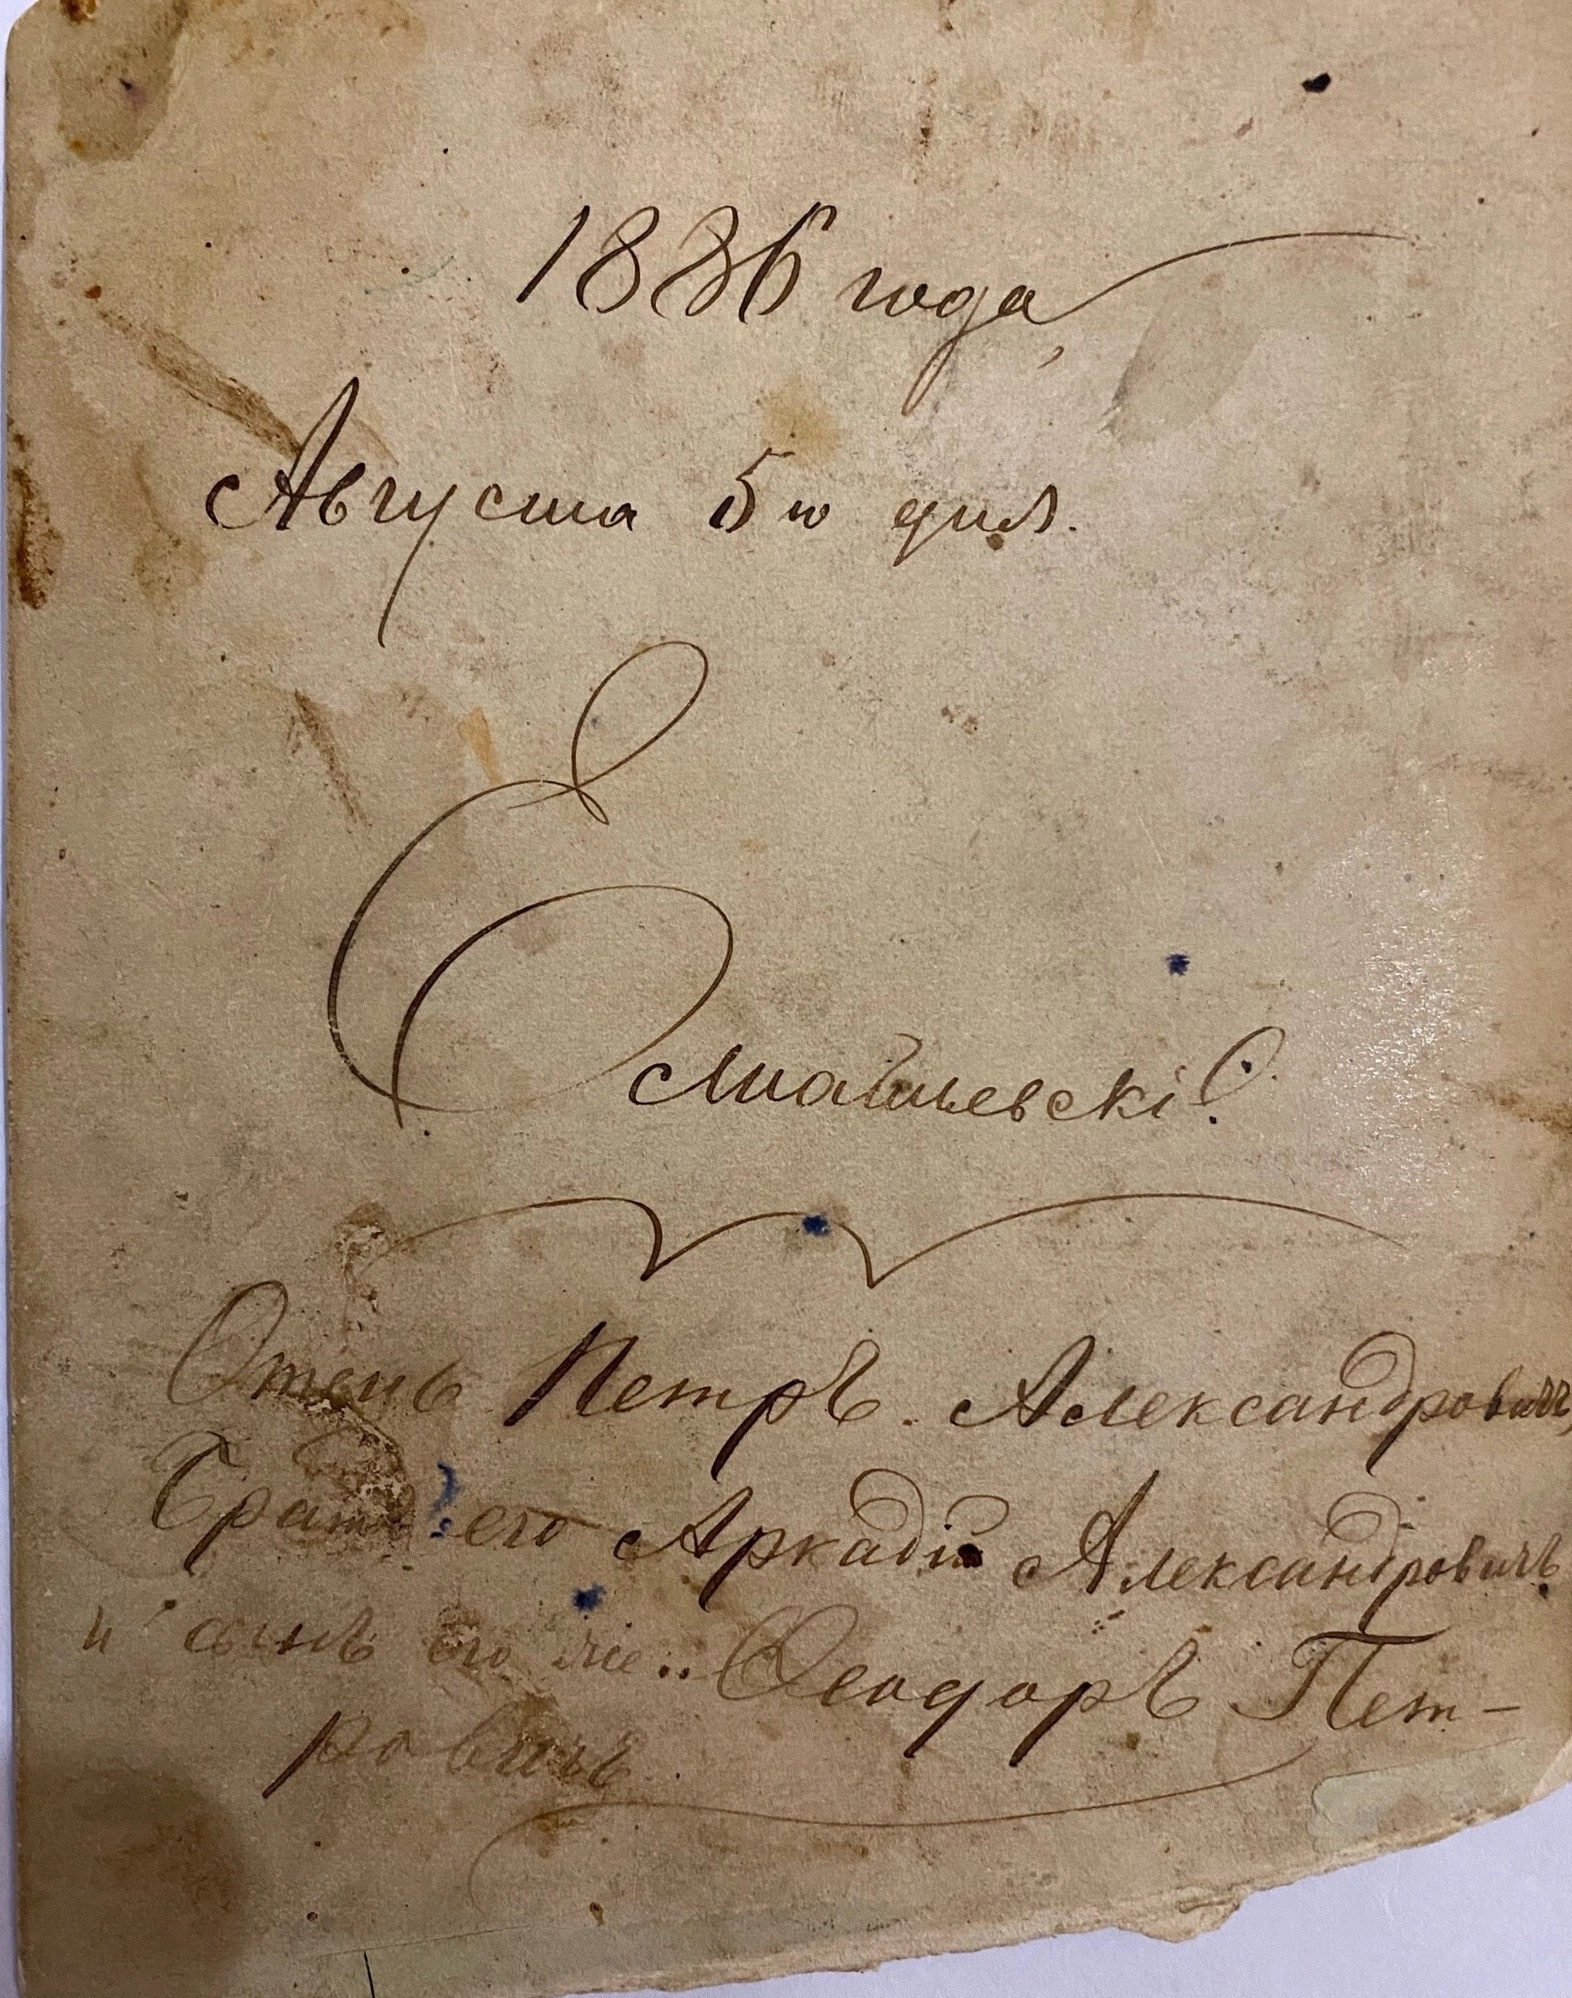 1886 года,
Августа 5го дня.
Отецъ Петръ Александровичъ,
Братъ его Аркадій Александровичъ
и сынъ его
Ѳеодоръ Пет-
ровичъ